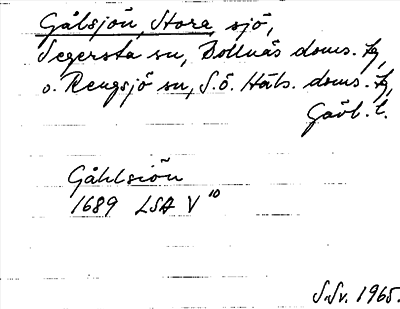 Gålsjön, Stora, sjö,
Segersta sn, Bollnäs doms. hg,
o. Rengsjö sn, S.ö. Häls. doms. hg,
Gävl. l.
Gåhlsiön
1689 LSA V 10
S.Sv. 1965.